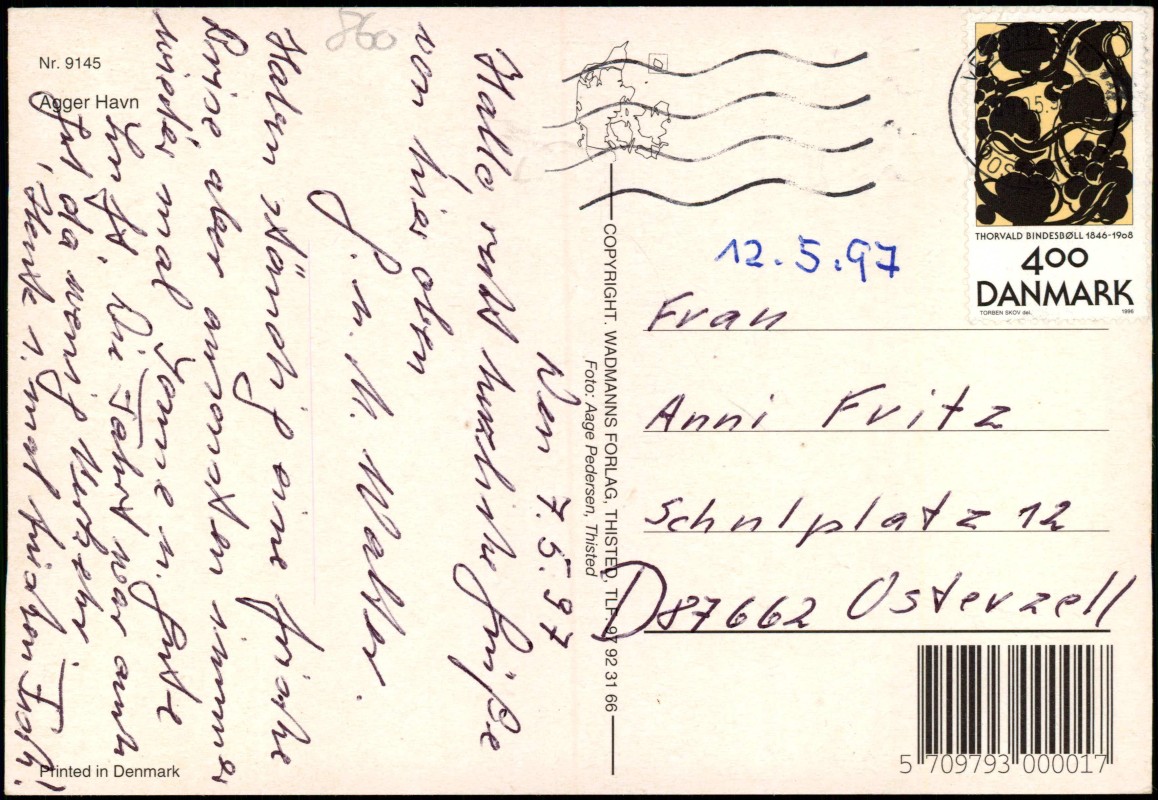 Nr. 9145
Agger Havn
860
Den 7.5.97
Hallo, recht herzliche Grüße
von hier oben
G. u. M. Walter.
Haben ständig eine frische
Brise, aber ansonsten immer
wieder mal Sonne u. gute
Luft. Die Fahrt war auch
gut da wenig Verkehr
Heute 1. mal frischen Fisch!
Printed in Denmark
COPYRIGHT. WADMANNS FORLAG, THISTED, TLF. 97 92 31 66
Foto: Aage Pedersen, Thisted
THORVALD BINDESBØLL 1846-1908
400
DANMARK
TORBEN SKOV del.
1996
12.5.97
Frau
Anni Fritz
Schulplatz 12
D 87662 Osterzell
5 709793 000017